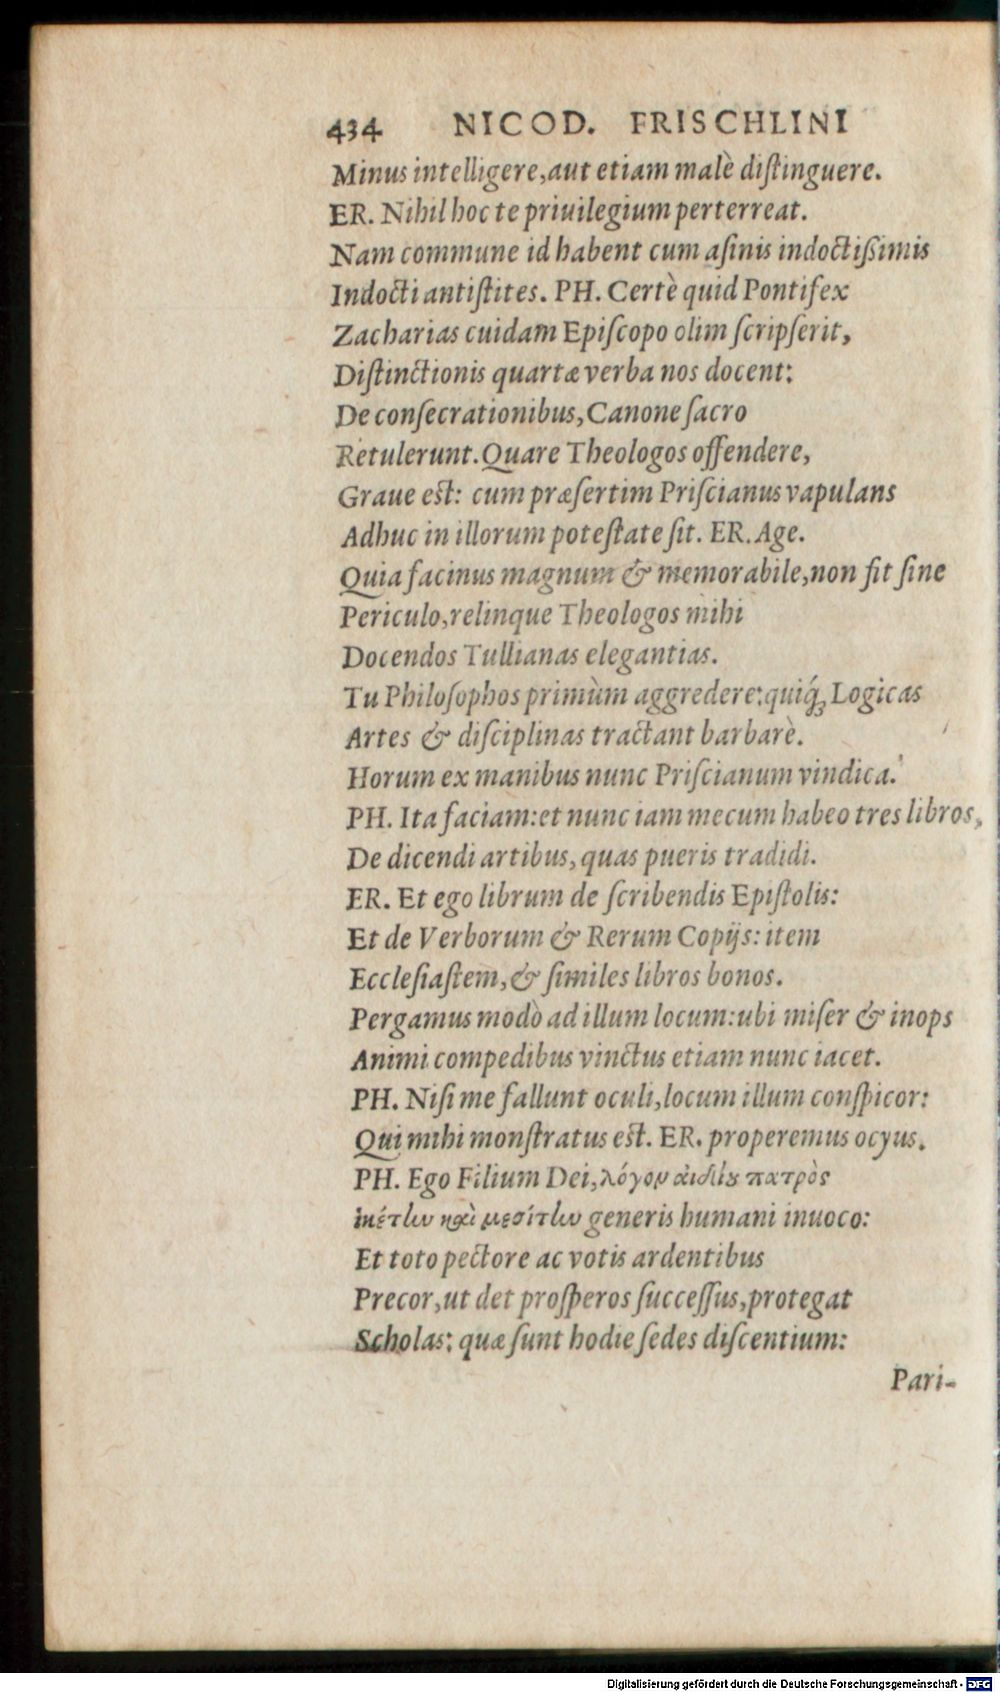 434 NICOD. FRISCHLINI
Minus intelligere, aut etiam malè diſtinguere.
ER. Nihil hoc te priuilegium perterreat.
Nam commune id habent cum aſinis indoctißimis
Indocti antiſtites. PH. Certè quid Pontifex
Zacharias cuidam Epiſcopo olim ſcripſerit,
Diſtinctionis quartæ verba nos docent:
De conſecrationibus, Canone ſacro
Retulerunt. Quare Theologos offendere,
Graue est: cum præſertim Priſcianus vapulans
Adhuc in illorum poteſtate ſit. ER. Age.
Quia facinus magnum & memorabile, non fit ſine
Periculo, relinque Theologos mihi
Docendos Tullianas elegantias.
Tu Philoſophos primùm aggredere: quiq́ꝫ Logicas
Artes & diſciplinas tractant barbarè.
Horum ex manibus nunc Priſcianum vindica.
PH. Ita faciam: et nunc iam mecum habeo tres libros,
De dicendi artibus, quas pueris tradidi.
ER. Et ego librum de ſcribendis Epiſtolis:
Et de Verborum & Rerum Copijs: item
Eccleſiaſtem, & ſimiles libros bonos.
Pergamus modò ad illum locum: ubi miſer & inops
Animi compedibus vinctus etiam nunc iacet.
PH. Niſi me fallunt oculi, locum illum conſpicor:
Qui mihi monſtratus est. ER. properemus ocyus.
PH. Ego Filium Dei, λόγον ἀιδίȣ πατρὸς
ἱκέτην καὶ μεσίτην generis humani inuoco:
Et toto pectore ac votis ardentibus
Precor, ut det proſperos ſucceſſus, protegat
Scholas: quæ ſunt hodie ſedes diſcentium:
Pari-
Digitalisierung gefördert durch die Deutsche Forschungsgemeinschaft - DFG